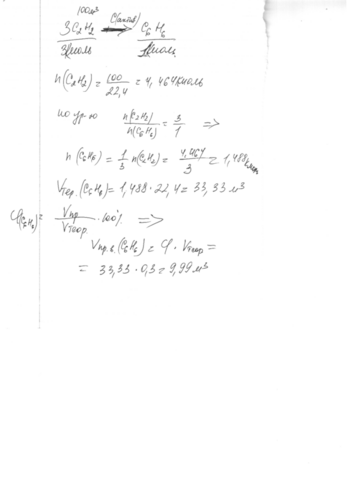 100м³
3C₂H₂ C(актив)→ C₆H₆
3кмоль 1кмоль
n(C₂H₂) = 100/22,4 = 4,464кмоль
по ур-ю n(C₂H₂)/n(C₆H₆) = 3/1 =>
n(C₆H₆) = 1/3 n(C₂H₂) = 4,464/3 = 1,488кмоль
Vтеор.(C₆H₆) = 1,488 · 22,4 = 33,33 м³
φ(C₆H₆) = Vпр/Vтеор. · 100% =>
Vпр.(C₆H₆) = φ · Vтеор =
= 33,33 · 0,3 = 9,99 м³